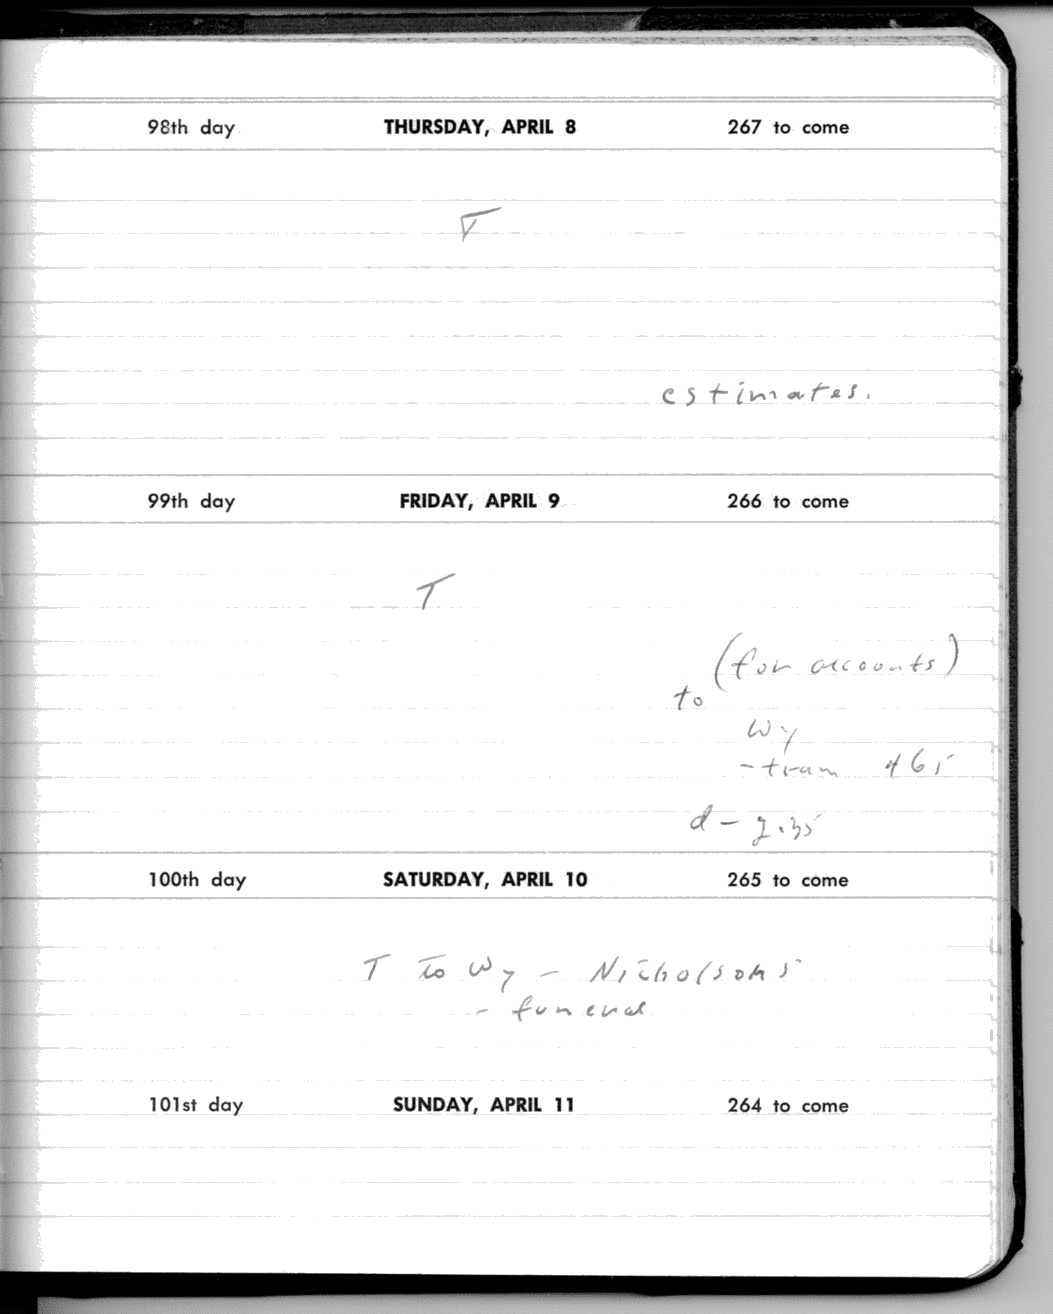 98th day THURSDAY, APRIL 8 267 to come
T
estimates.
99th day FRIDAY, APRIL 9 266 to come
T
(for accounts)
to
Wy
- tram 465
d -
100th day SATURDAY, APRIL 10 265 to come
T to Wy - Nicholsons
- funeral
101st day SUNDAY, APRIL 11 264 to come